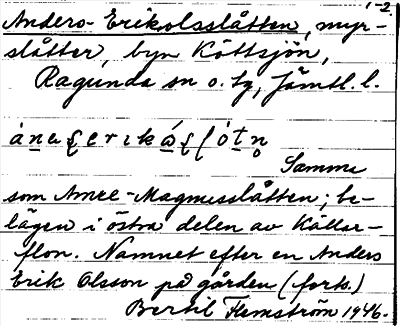 1-2.
Anders-Erikolsslåtten, myr-
slåtter, byn Köttsjön,
Ragunda sn o. tg, Jämtl. l.
Samma
som Anne-Magnusslåtten; be-
lägen i östra delen av Källar-
flon. Namnet efter en Anders
Erik Olsson på gården (forts.)
Bertil Flemström 1946.